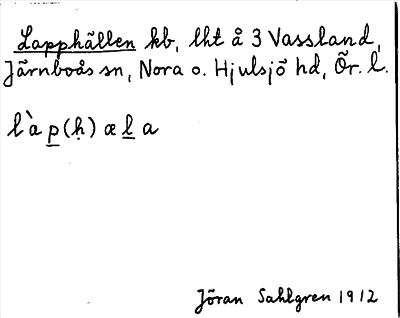 Lapphällen kb, lht å 3 Vassland,
Järnboås sn, Nora o. Hjulsjö hd, Ör. l.
l`a p(h) æ l a
Jöran Sahlgren 1912